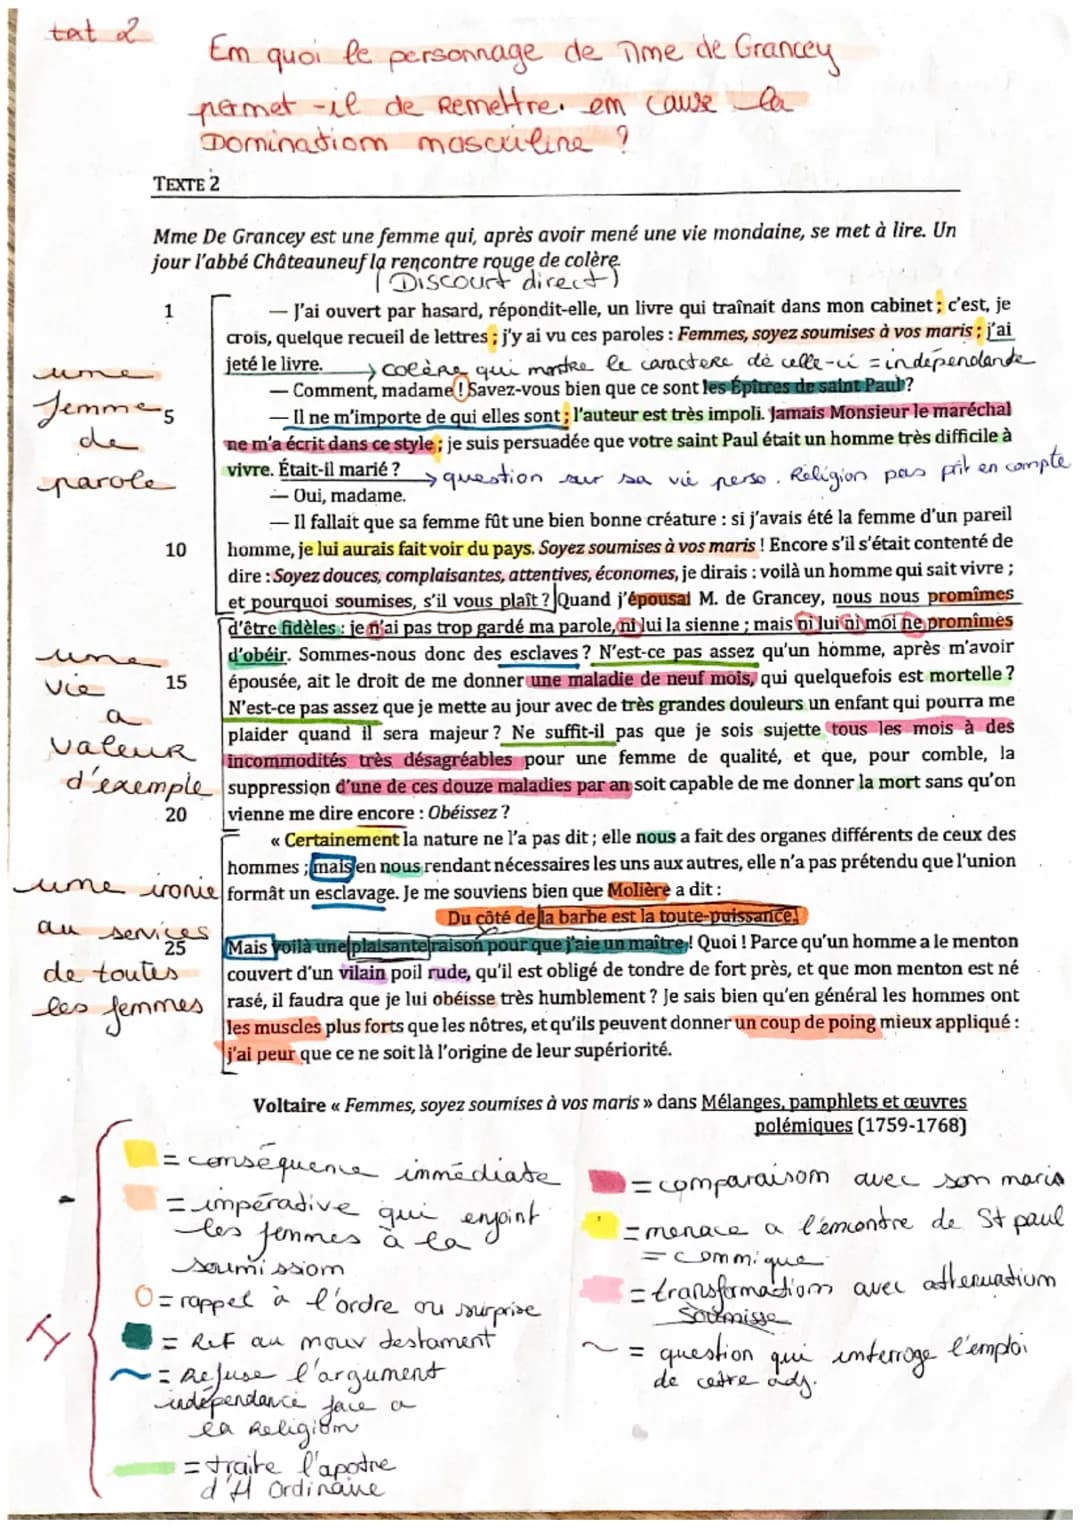 txt 2
Em quoi le personnage de Mme de Grancey
permet-il de Remettre em cause la
Domination masculine ?
TEXTE 2
Mme De Grancey est une femme qui, après avoir mené une vie mondaine, se met à lire. Un
jour l'abbé Châteauneuf la rencontre rouge de colère.
(Discourt direct)
1
— J'ai ouvert par hasard, répondit-elle, un livre qui traînait dans mon cabinet ; c'est, je
crois, quelque recueil de lettres ; j'y ai vu ces paroles : Femmes, soyez soumises à vos maris ; j'ai
jeté le livre.
→ colère qui montre le caractere de celle-ci = independante
— Comment, madame ! Savez-vous bien que ce sont les Épîtres de saint Paul ?
5
— Il ne m'importe de qui elles sont ; l'auteur est très impoli. Jamais Monsieur le maréchal
ne m'a écrit dans ce style ; je suis persuadée que votre saint Paul était un homme très difficile à
vivre. Était-il marié ?
→ question sur sa vie perso. Religion pas prit en compte
— Oui, madame.
— Il fallait que sa femme fût une bien bonne créature : si j'avais été la femme d'un pareil
10
homme, je lui aurais fait voir du pays. Soyez soumises à vos maris ! Encore s'il s'était contenté de
dire : Soyez douces, complaisantes, attentives, économes, je dirais : voilà un homme qui sait vivre ;
et pourquoi soumises, s'il vous plaît ? Quand j'épousai M. de Grancey, nous nous promîmes
d'être fidèles : je n'ai pas trop gardé ma parole, ni lui la sienne ; mais ni lui ni moi ne promîmes
d'obéir. Sommes-nous donc des esclaves ? N'est-ce pas assez qu'un homme, après m'avoir
15
épousée, ait le droit de me donner une maladie de neuf mois, qui quelquefois est mortelle ?
N'est-ce pas assez que je mette au jour avec de très grandes douleurs un enfant qui pourra me
plaider quand il sera majeur ? Ne suffit-il pas que je sois sujette tous les mois à des
incommodités très désagréables pour une femme de qualité, et que, pour comble, la
suppression d'une de ces douze maladies par an soit capable de me donner la mort sans qu'on
20
vienne me dire encore : Obéissez ?
« Certainement la nature ne l'a pas dit ; elle nous a fait des organes différents de ceux des
hommes ; mais en nous rendant nécessaires les uns aux autres, elle n'a pas prétendu que l'union
formât un esclavage. Je me souviens bien que Molière a dit :
Du côté de la barbe est la toute-puissance.
25
Mais voilà une plaisante raison pour que j'aie un maître ! Quoi ! Parce qu'un homme a le menton
couvert d'un vilain poil rude, qu'il est obligé de tondre de fort près, et que mon menton est né
rasé, il faudra que je lui obéisse très humblement ? Je sais bien qu'en général les hommes ont
les muscles plus forts que les nôtres, et qu'ils peuvent donner un coup de poing mieux appliqué :
j'ai peur que ce ne soit là l'origine de leur supériorité.
une
femme
de
parole
une
vie
a
valeur
d'exemple
une ironie
au services
de toutes
les femmes
Voltaire « Femmes, soyez soumises à vos maris » dans Mélanges, pamphlets et œuvres
polémiques (1759-1768)
I
= conséquence immédiate
= impérative qui enjoint
les femmes à la
soumission
O = rappel à l'ordre ou surprise
= Ref au mouv testament
~ = Refuse l'argument
independance face a
la Religion
= traite l'apotre
d'H Ordinaire
= comparaison avec son maris
= menace a l'encontre de St paul
= commique
= transformations avec attenuation
soumisse
~ = question qui interroge l'emploi
de cette adj.